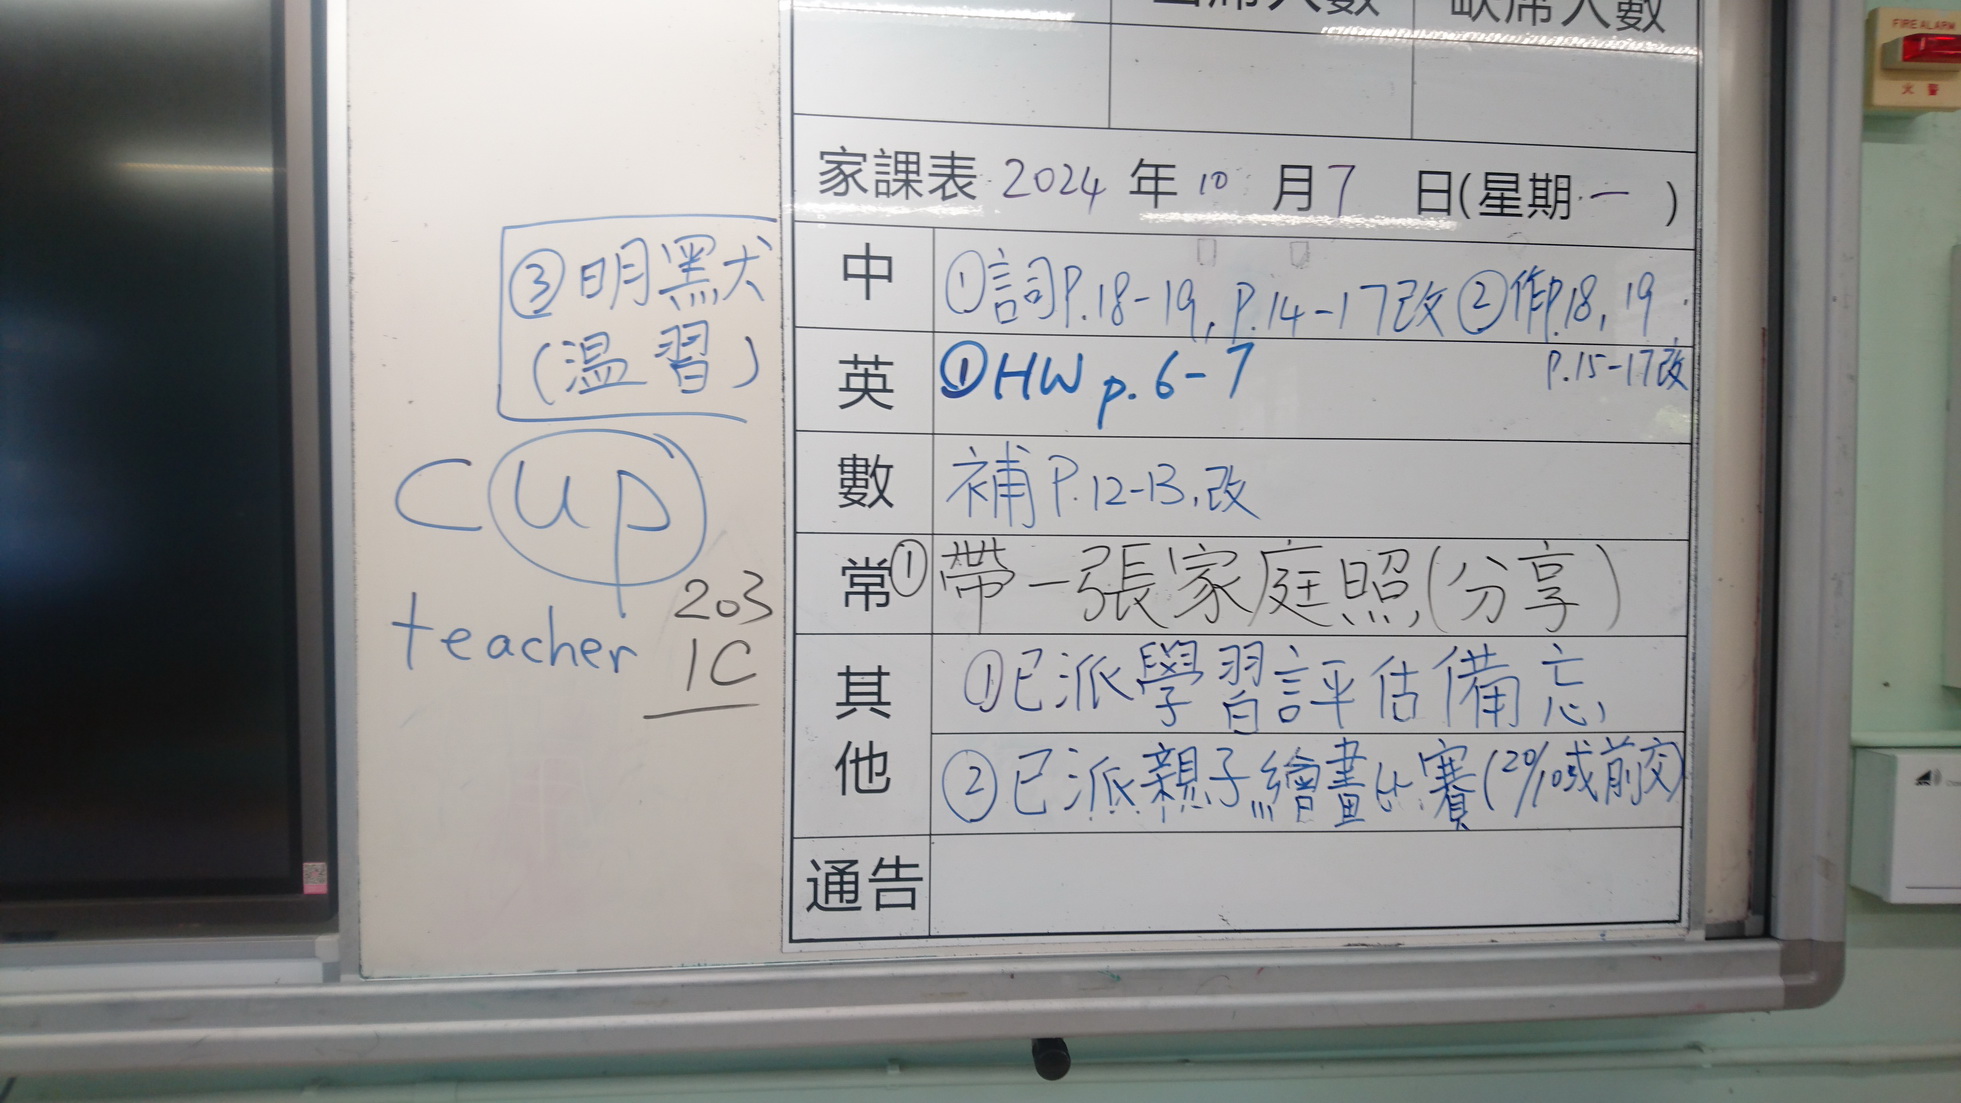 出席人數 缺席人數
家課表 2024 年 10 月 7 日(星期 一 )
中 ①詞P.18-19, P.14-17改 ②作P.18, 19,
P.15-17改
③明默犬
(溫習)
英 ①HW p.6-7
數 補P.12-13,改
常 ①帶一張家庭照(分享)
其他 ①已派學習評估備忘
②已派親子繪畫比賽(20/10或前交)
通告
cup
teacher
203
1C
FIRE ALARM
火 警